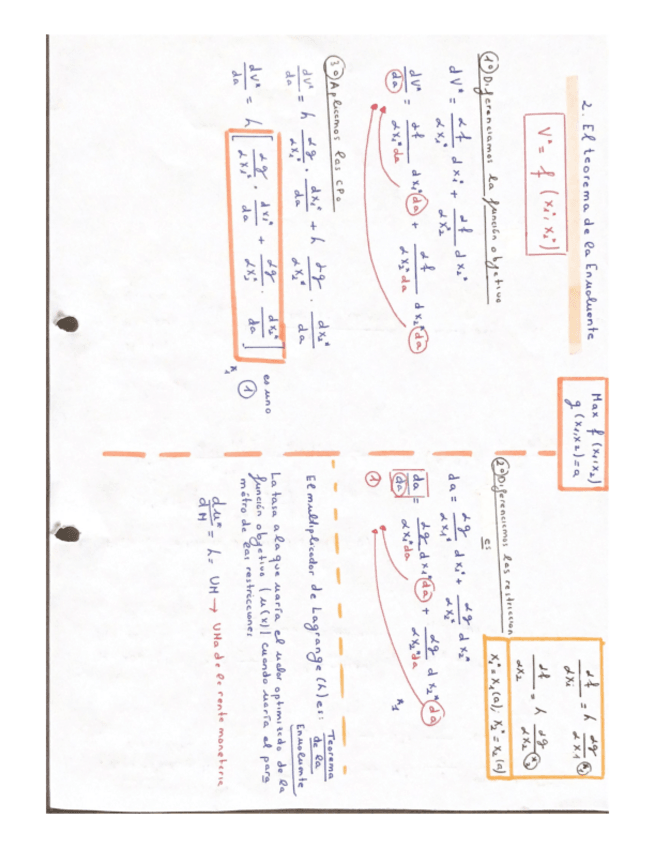 2. El teorema de la Envolvente
V* = f (x₁*, x₂*)
Max f (x₁,x₂)
g (x₁,x₂) = a
1º Diferenciamos la función objetivo
dV* = ∂f/∂x₁* dx₁* + ∂f/∂x₂* dx₂*
dV*/da = ∂f/∂x₁* da dx₁* da + ∂f/∂x₂* da dx₂* da
3º Aplicamos las CPO
dV*/da = λ ∂g/∂x₁* · dx₁*/da + λ ∂g/∂x₂* · dx₂*/da
dV*/da = λ [ ∂g/∂x₁* · dx₁*/da + ∂g/∂x₂* · dx₂*/da ]
es uno
1
∂f/∂x₁ = λ ∂g/∂x₁ (*)
∂f/∂x₂ = λ ∂g/∂x₂ (*)
x₁* = x₁(a), x₂* = x₂(a)
2º Diferenciamos las restriccion
es
da = ∂g/∂x₁* dx₁* + ∂g/∂x₂* dx₂*
da/da = ∂g/∂x₁* da dx₁* da + ∂g/∂x₂* da dx₂* da
1
El multiplicador de Lagrange (λ) es: Teorema
de la
Envolvente
La tasa a la que varía el valor optimizado de la
función objetivo (u(x)) cuando varía el pará
metro de las restricciones
du*/dM = λ = UM → UMa de la renta monetaria